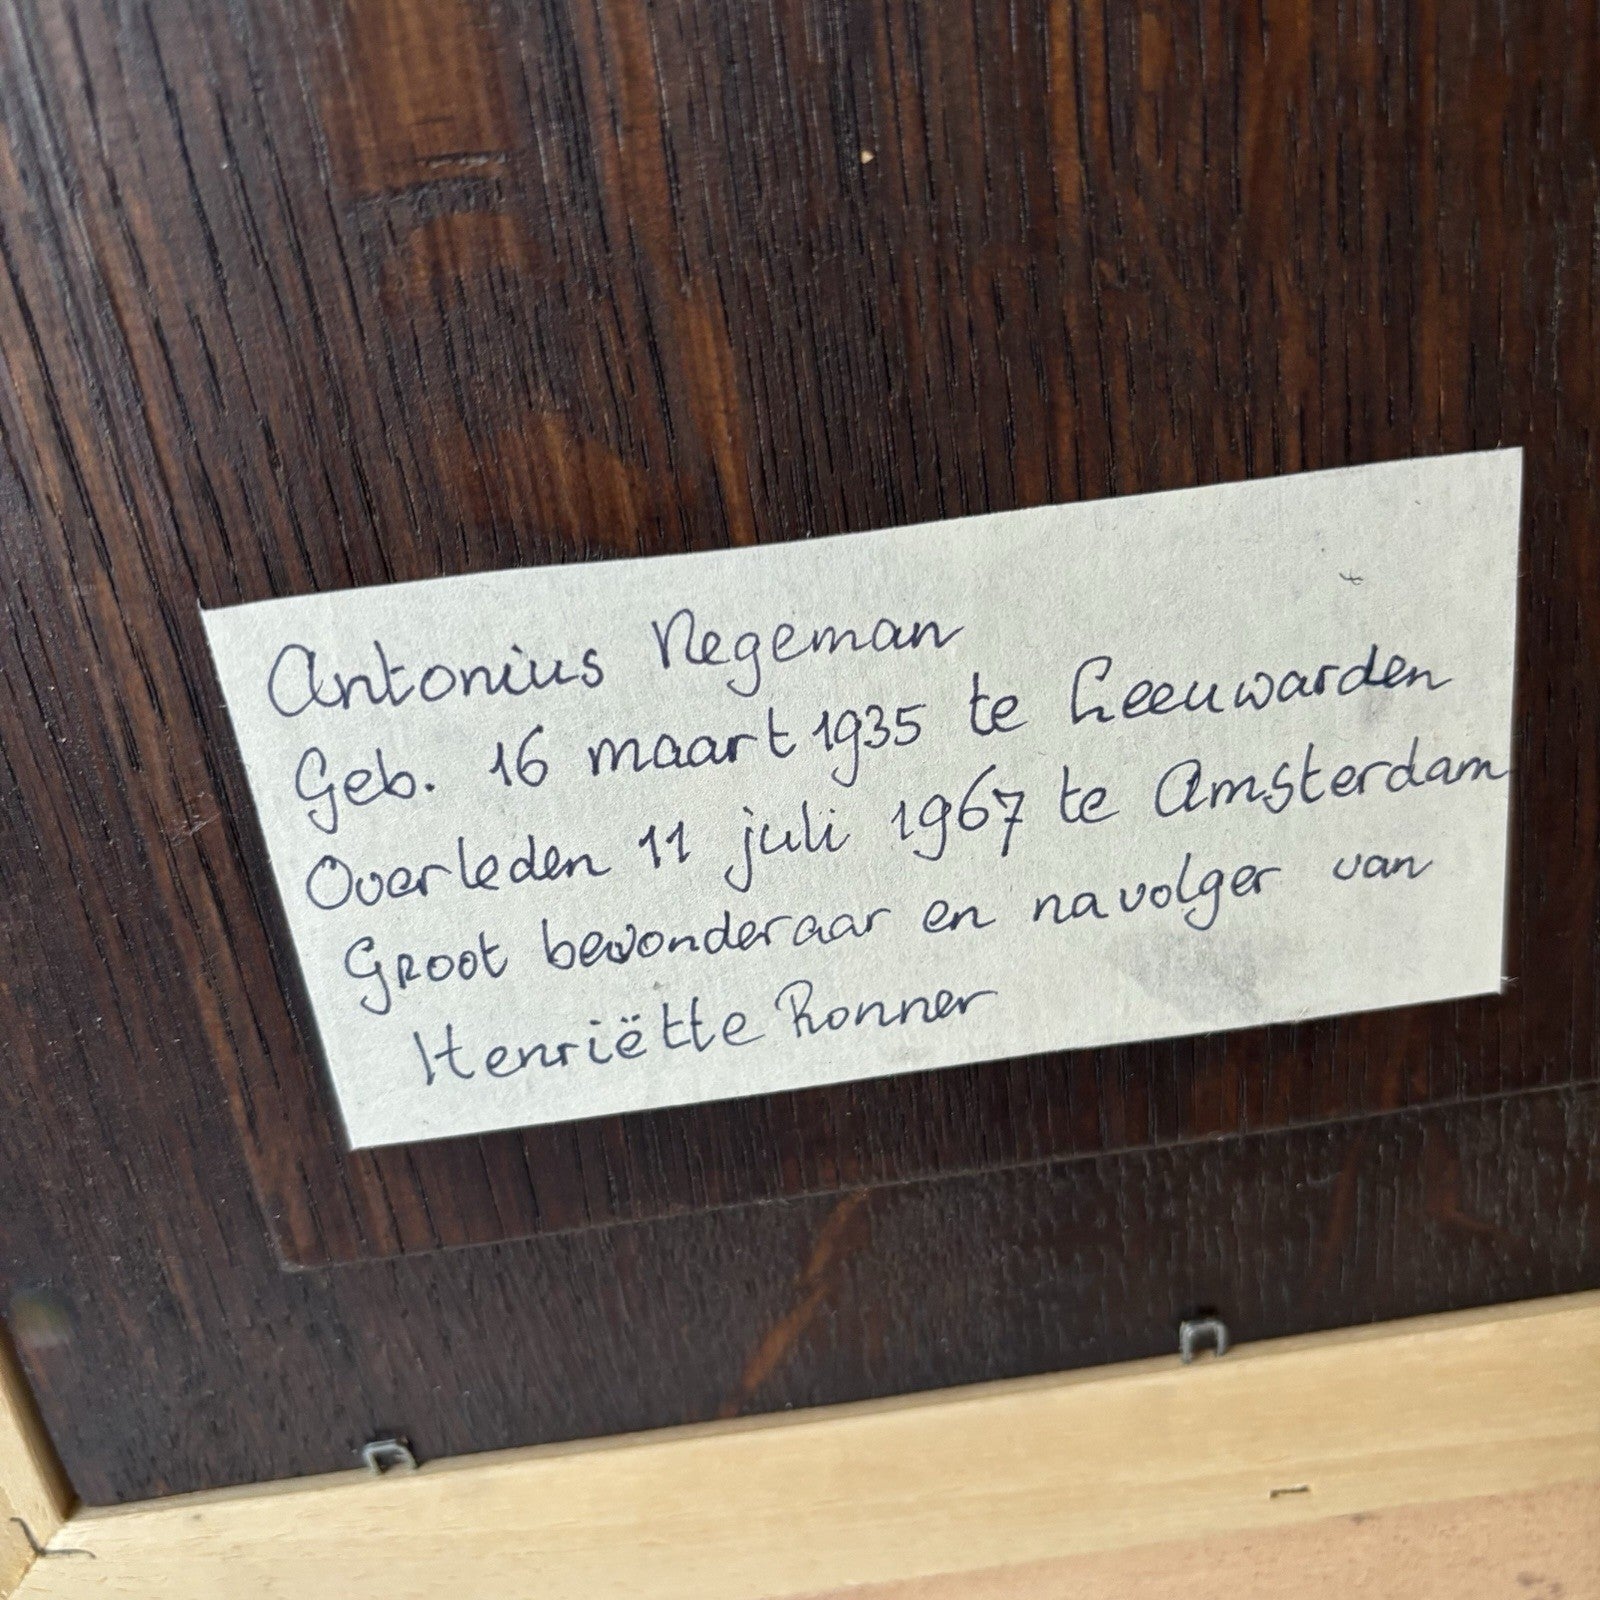 Antonius Negeman
Geb. 16 maart 1935 te Leeuwarden
Overleden 11 juli 1967 te Amsterdam
Groot bewonderaar en navolger van
Henriëtte Ronner